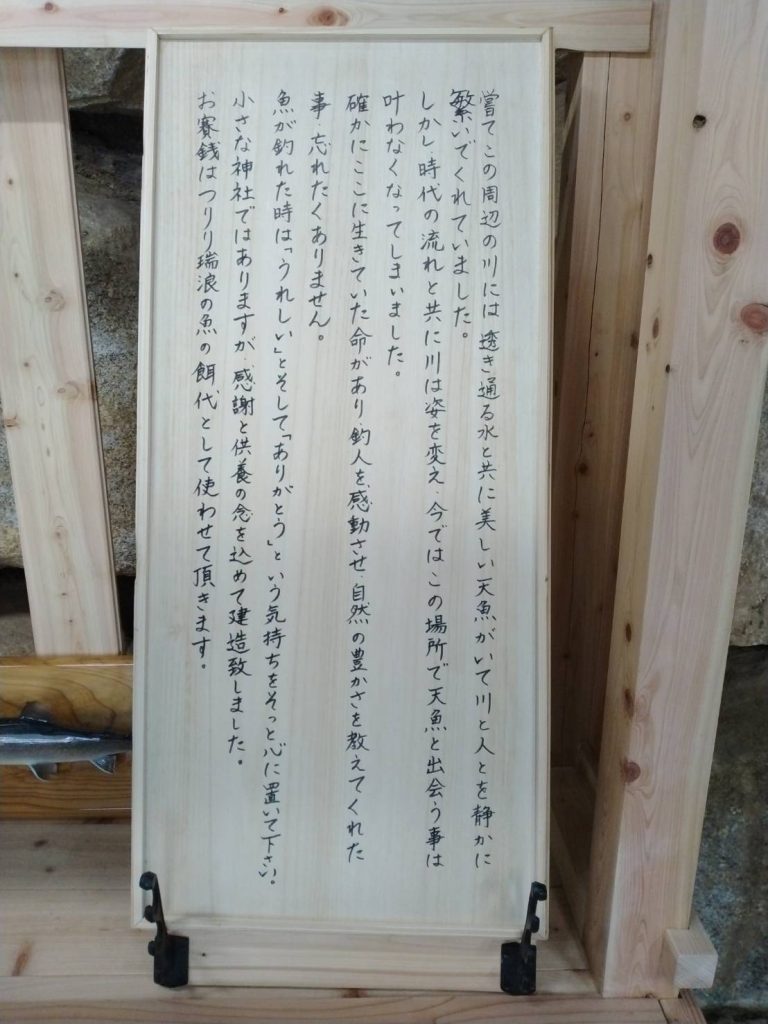 嘗てこの周辺の川には透き通る水と共に美しい天魚がいて川と人とを静かに
繋いでくれていました。
しかし、時代の流れと共に川は姿を変え、今ではこの場所で天魚と出会う事は
叶わなくなってしまいました。
確かにここに生きていた命があり、釣人を感動させ、自然の豊かさを教えてくれた
事、忘れたくありません。
魚が釣れた時は「うれしい」とそして「ありがとう」という気持ちをそっと心に置いて下さい。
小さな神社ではありますが、感謝と供養の念を込めて建造致しました。
お賽銭はつりり瑞浪の魚の餌代として使わせて頂きます。